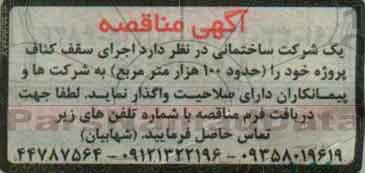 آگهی مناقصه
یک شرکت ساختمانی در نظر دارد اجرای سقف کناف
پروژه خود را (حدود ۱۰۰ هزار متر مربع) به شرکت ها و
پیمانکاران دارای صلاحیت واگذار نماید. لطفا جهت
دریافت فرم مناقصه با شماره تلفن های زیر
تماس حاصل فرمایید. (شهابیان)
۰۹۳۵۸۰۱۹۶۱۹-۰۹۱۲۱۳۲۲۱۹۶-۴۴۷۸۷۵۶۴